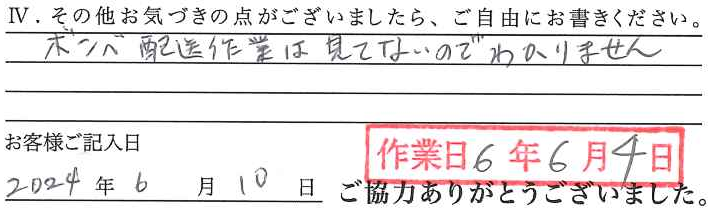 Ⅳ．その他お気づきの点がございましたら、ご自由にお書きください。
ボンベ配送作業は見てないのでわかりません
お客様ご記入日
作業日6年6月4日
2024年6月10日 ご協力ありがとうございました。